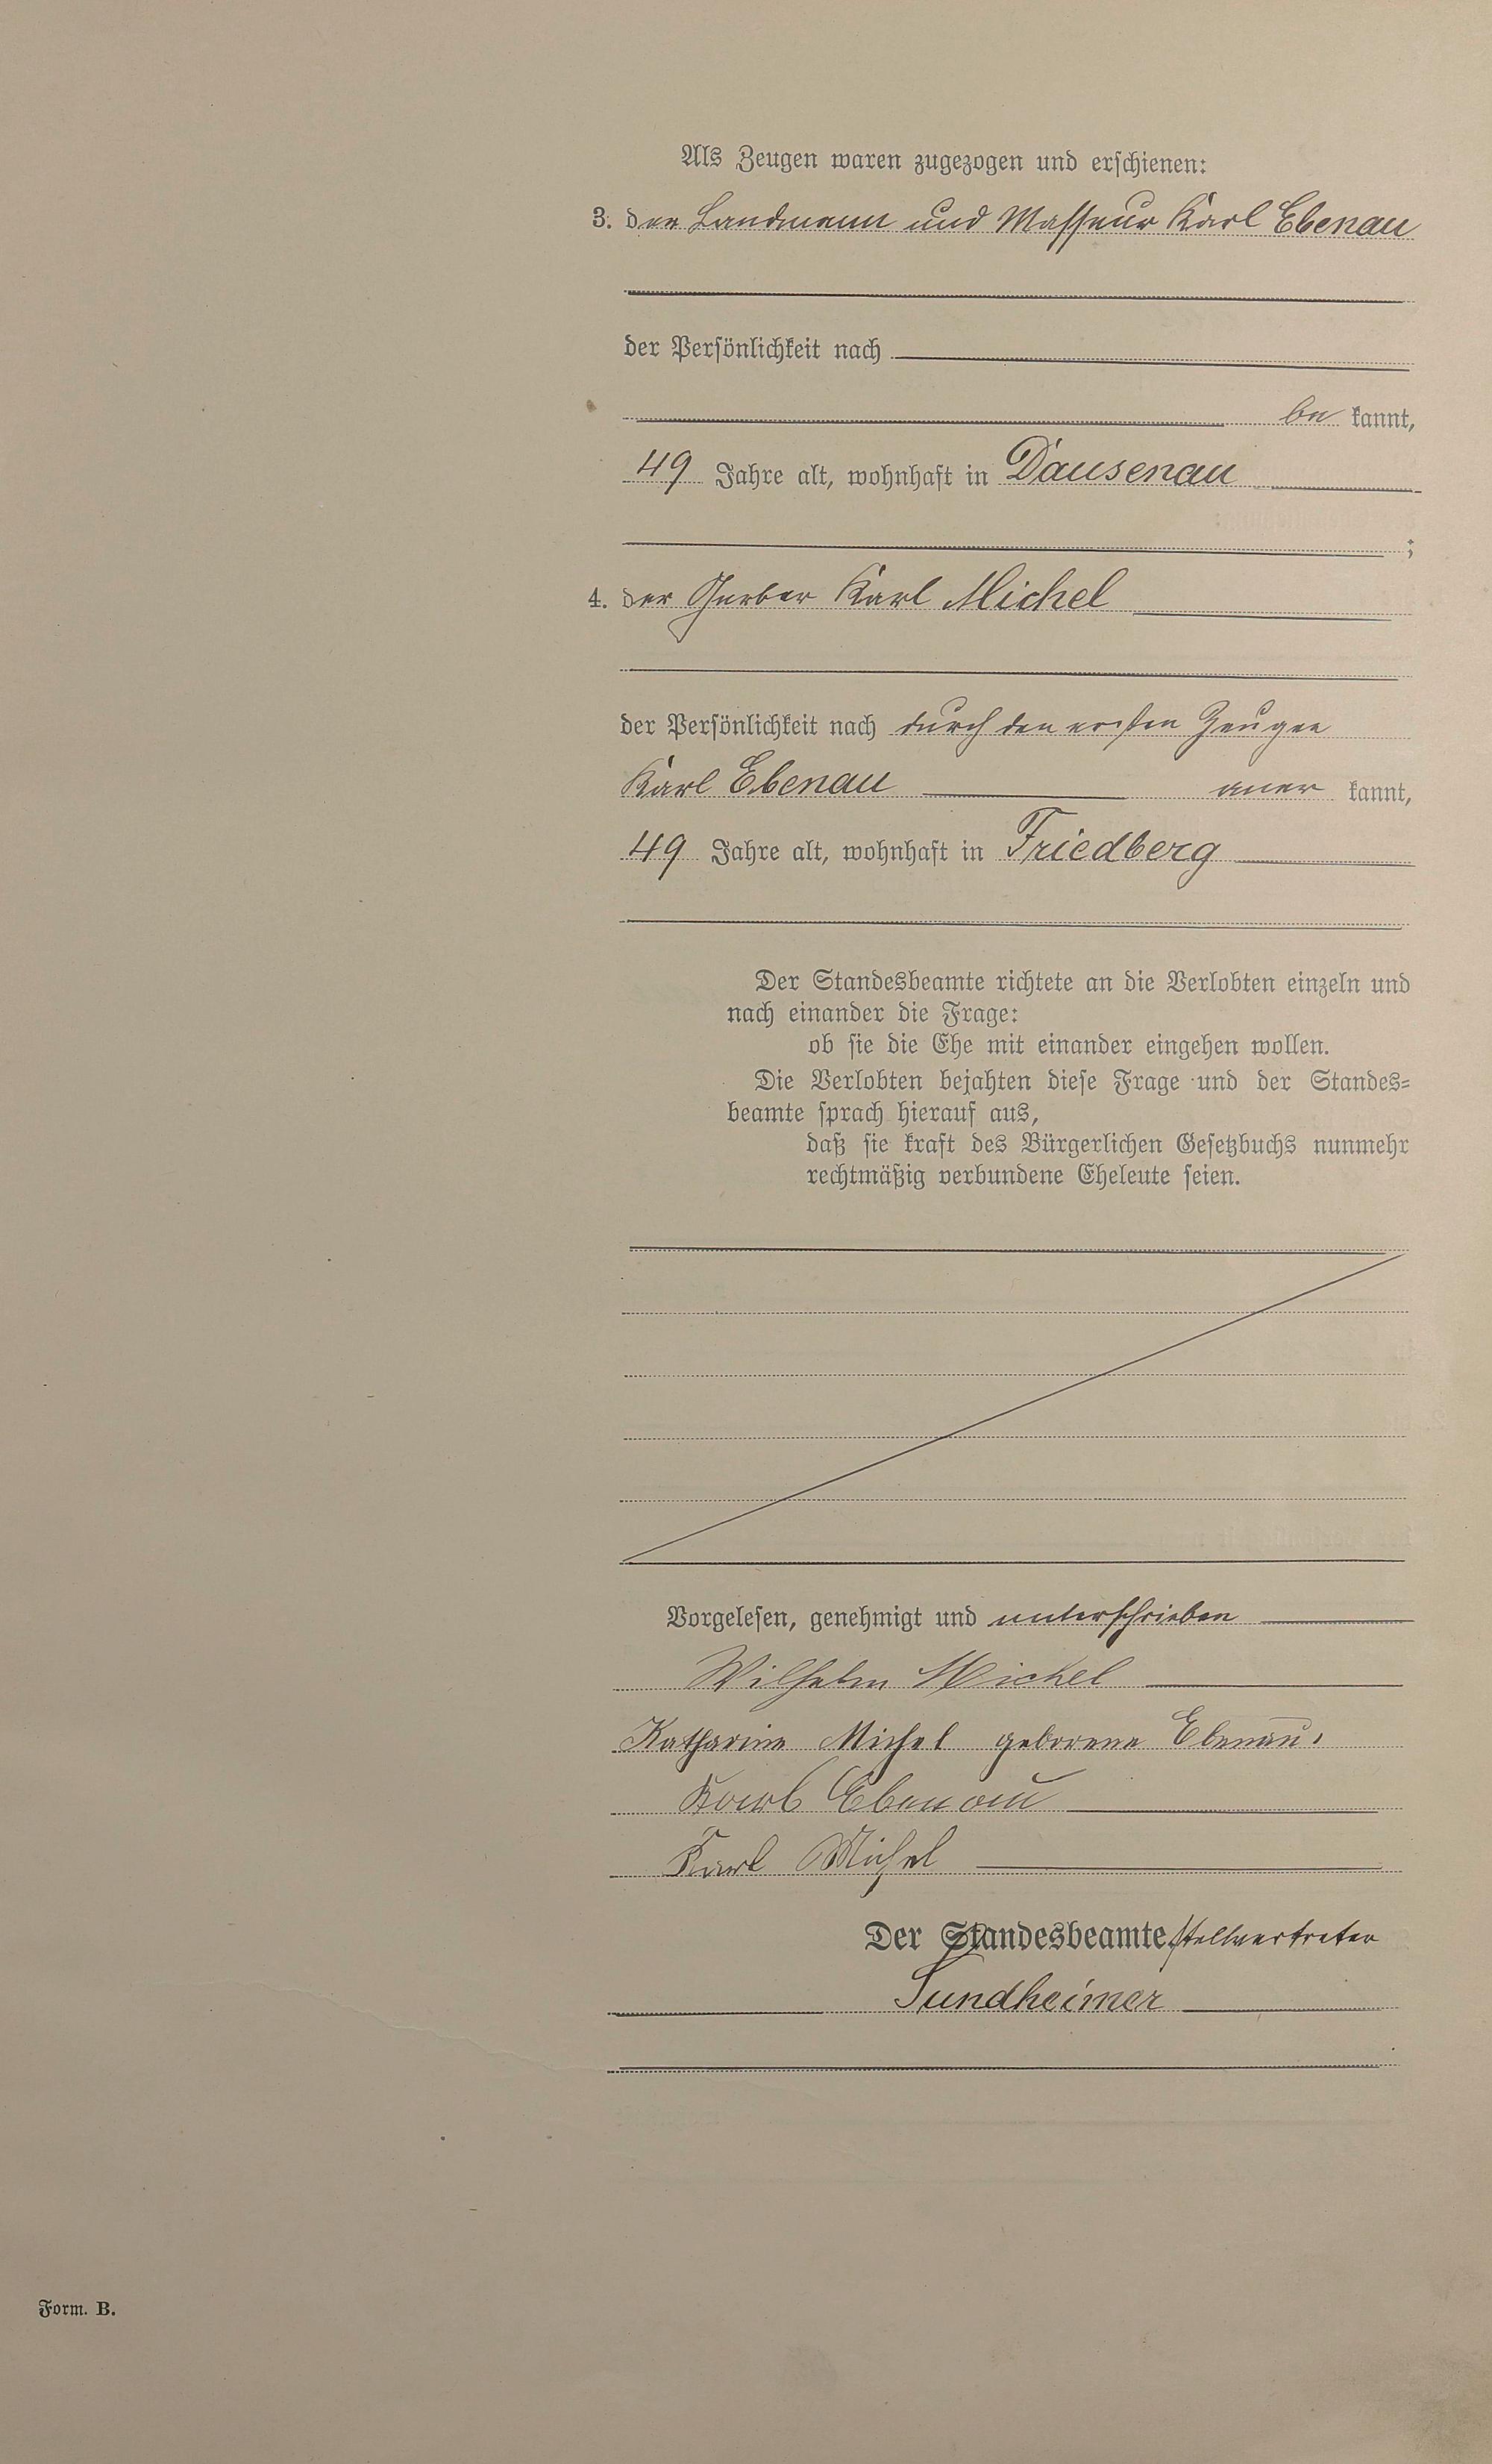 Als Zeugen waren zugezogen und erschienen:
3. der Landmann und Masseur Karl Ebenau
der Persönlichkeit nach
be kannt,
49 Jahre alt, wohnhaft in Dausenau
;
4. der Gerber Karl Michel
der Persönlichkeit nach durch den ersten Zeugen
Karl Ebenau aner kannt,
49 Jahre alt, wohnhaft in Friedberg
Der Standesbeamte richtete an die Verlobten einzeln und
nach einander die Frage:
ob sie die Ehe mit einander eingehen wollen.
Die Verlobten bejahten diese Frage und der Standes-
beamte sprach hierauf aus,
daß sie kraft des Bürgerlichen Gesetzbuchs nunmehr
rechtmäßig verbundene Eheleute seien.
Vorgelesen, genehmigt und unterschrieben
Wilhelm Michel
Katharine Michel geborene Ebenau.
Karl Ebenau
Karl Michel
Der Standesbeamte stellvertreter
Sundheimer
Form. B.